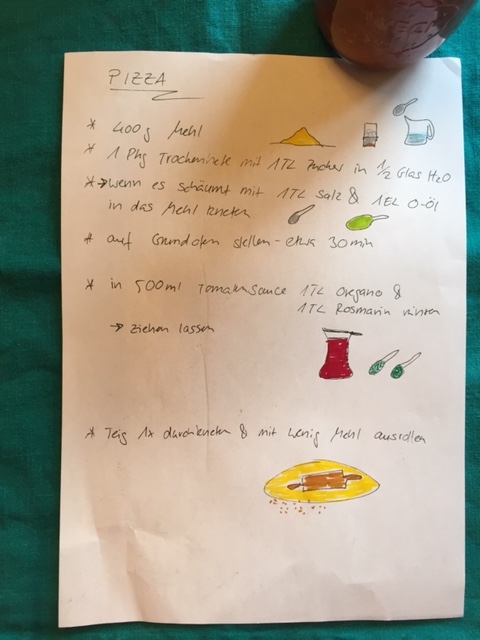 PIZZA
* 400g Mehl
* 1 Pkg Trockenhefe mit 1TL Zucker in 1/2 Glas H2O
* → wenn es schäumt mit 1TL Salz & 1EL O-Öl
in das Mehl kneten
* auf Grundofen stellen - etwa 30min
* in 500ml Tomatensauce 1TL Oregano &
1TL Rosmarin rühren
→ ziehen lassen
* Teig 1x durchkneten & mit wenig Mehl ausrollen